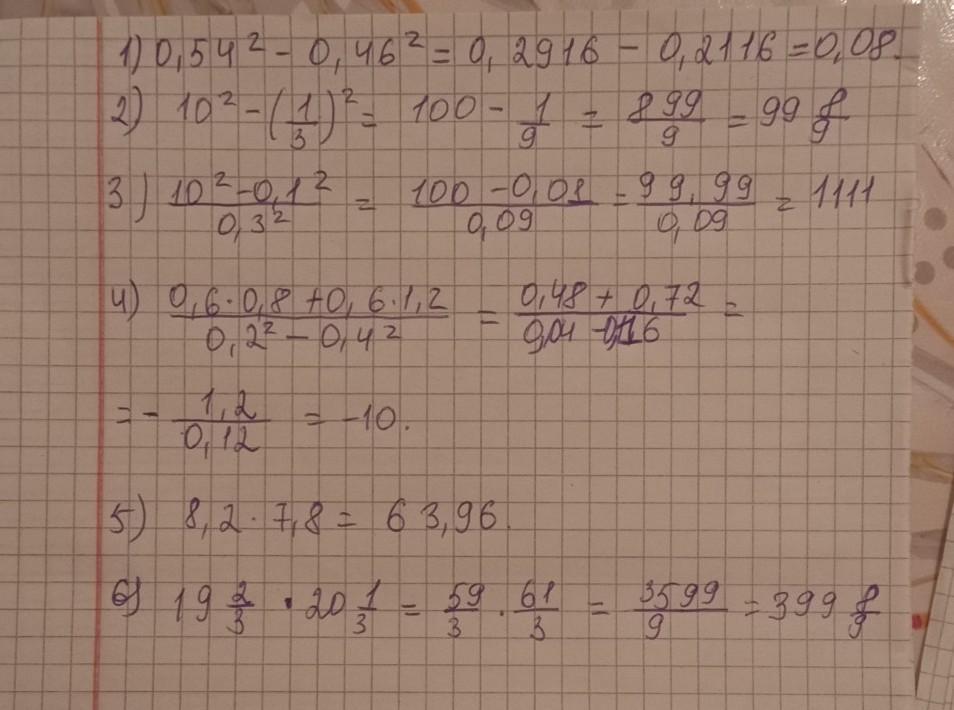 1) 0,54² - 0,46² = 0,2916 - 0,2116 = 0,08.
2) 10² - (1/3)² = 100 - 1/9 = 899/9 = 99 8/9
3) (10² - 0,1²)/(0,3²) = (100 - 0,01)/(0,09) = 99,99/0,09 = 1111
4) (0,6·0,8 + 0,6·1,2)/(0,2² - 0,4²) = (0,48 + 0,72)/(0,04 - 0,16) =
= - 1,2/0,12 = -10.
5) 8,2 · 7,8 = 63,96.
6) 19 2/3 · 20 1/3 = 59/3 · 61/3 = 3599/9 = 399 8/9